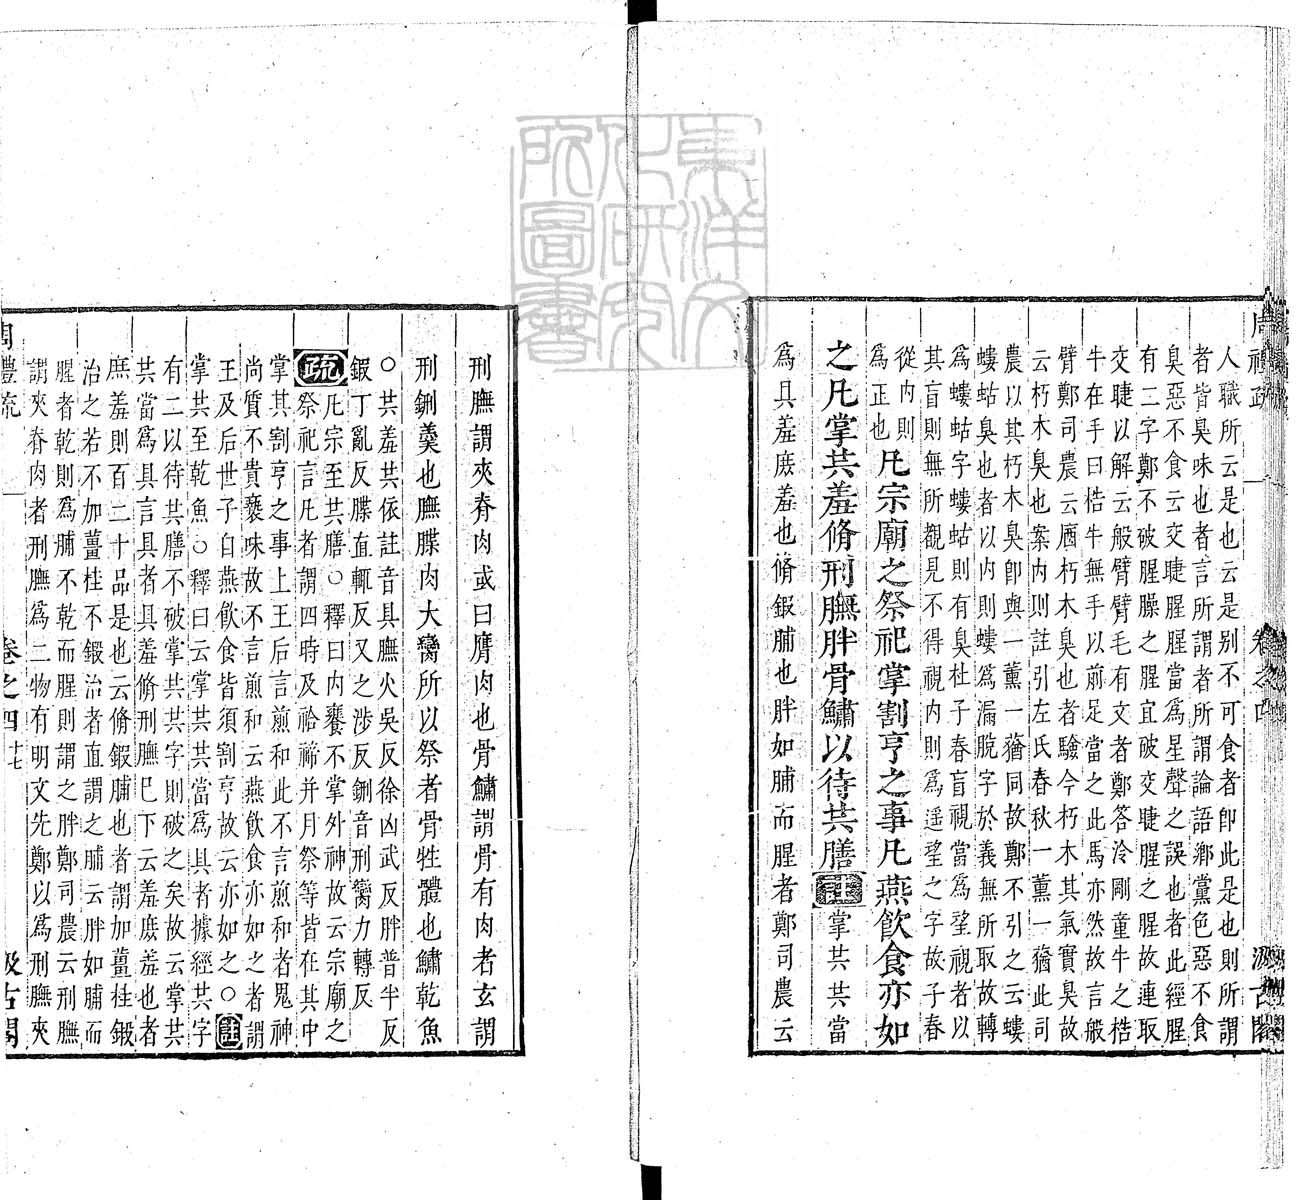 周禮疏 卷之四 汲古閣
人職所云是也云是別不可食者卽此是也則所謂
者皆臭味也者言所謂者所謂論語鄉黨色惡不食
臭惡不食云交睫腥腥當爲星聲之誤也者此經腥
有二字鄭不破腥臊之腥宜破交睫腥之腥故連取
交睫以解云般臂臂毛有文者鄭答泠剛童牛之梏
牛在手曰梏牛無手以前足當之此馬亦然故言般
臂鄭司農云𢉙朽木臭也者驗今朽木其氣實臭故
云朽木臭也案內則註引左氏春秋一薰一蕕此司
農以其朽木臭卽與一薰一蕕同故鄭不引之云螻
螻蛄臭也者以內則螻爲漏脫字於義無所取故轉
爲螻蛄字螻蛄則有臭杜子春盲視當爲望視者以
其盲則無所覩見不得視內則爲遥望之字故子春
從內則
爲正也
凡宗廟之祭祀掌割亨之事凡燕飲食亦如
之凡掌共羞脩刑膴胖骨鱐以待共膳註掌共共當
爲具羞庶羞也脩鍛脯也胖如脯而腥者鄭司農云
刑膴謂夾脊肉或曰膺肉也骨鱐謂骨有肉者玄謂
刑鉶羹也膴䐑肉大臠所以祭者骨牲體也鱐乾魚
○共羞共依註音具膴火吳反徐凶武反胖普半反
鍛丁亂反䐑直輒反又之涉反鉶音刑臠力轉反
疏凡宗至共膳○釋曰內饔不掌外神故云宗廟之
祭祀言凡者謂四時及祫禘并月祭等皆在其中
掌其割亨之事上王后言煎和此不言煎和者鬼神
尚質不貴褻味故不言煎和云燕飲食亦如之者謂
王及后世子自燕飲食皆須割亨故云亦如之○註
掌共至乾魚○釋曰云掌共共當爲具者據經共字
有二以待共膳不破掌共共字則破之矣故云掌共
共當爲具言具者具羞脩刑膴巳下云羞庶羞也者
庶羞則百二十品是也云脩鍛脯也者謂加薑桂鍛
治之若不加薑桂不鍛治者直謂之脯云胖如脯而
腥者乾則爲脯不乾而腥則謂之胖鄭司農云刑膴
謂夾脊肉者刑膴爲二物有明文先鄭以爲刑膴夾
周禮疏 卷之四 十七 汲古閣
東洋文化研究所圖書